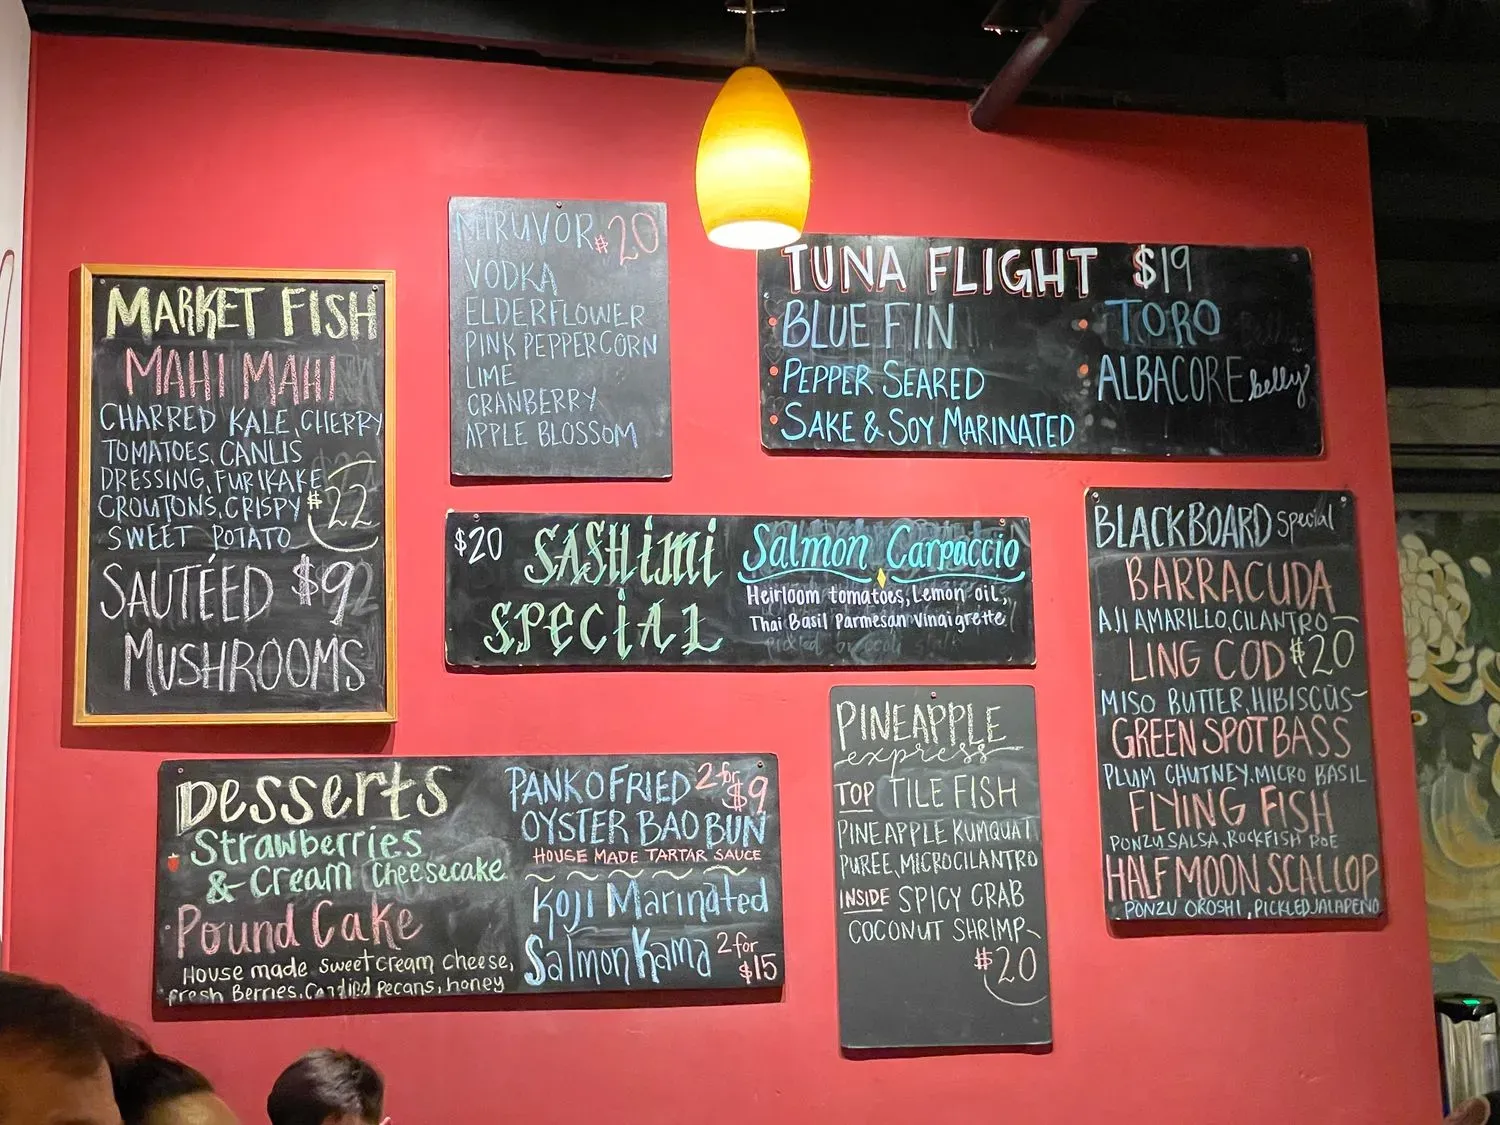 MARKET FISH
MAHI MAHI
CHARRED KALE, CHERRY
TOMATOES, CANLIS
DRESSING, FURIKAKE
CROUTONS, CRISPY $22
SWEET POTATO
SAUTÉED $9
MUSHROOMS
MIRUVOR $20
VODKA
ELDERFLOWER
PINK PEPPERCORN
LIME
CRANBERRY
APPLE BLOSSOM
TUNA FLIGHT $19
BLUE FIN
PEPPER SEARED
SAKE & SOY MARINATED
TORO
ALBACORE belly
$20 SASHiMi
SPECiAL
Salmon Carpaccio
Heirloom tomatoes, Lemon oil,
Thai Basil Parmesan vinaigrette
pickled broccoli stalk
BLACKBOARD Special
BARRACUDA
AJI AMARILLO, CILANTRO
LING COD $20
MISO BUTTER, HIBISCUS
GREEN SPOT BASS
PLUM CHUTNEY, MICRO BASIL
FLYING FISH
PONZU SALSA, ROCKFISH ROE
HALF MOON SCALLOP
PONZU OROSHI, PICKLED JALAPENO
Desserts
Strawberries
& Cream Cheesecake
Pound Cake
House made sweet cream cheese,
fresh Berries, Candied pecans, honey
PANKO FRIED 2 for $9
OYSTER BAO BUN
HOUSE MADE TARTAR SAUCE
Koji Marinated
Salmon Kama 2 for $15
PINEAPPLE
express
TOP TILE FISH
PINEAPPLE KUMQUAT
PUREE, MICROCILANTRO
INSIDE SPICY CRAB
COCONUT SHRIMP
$20